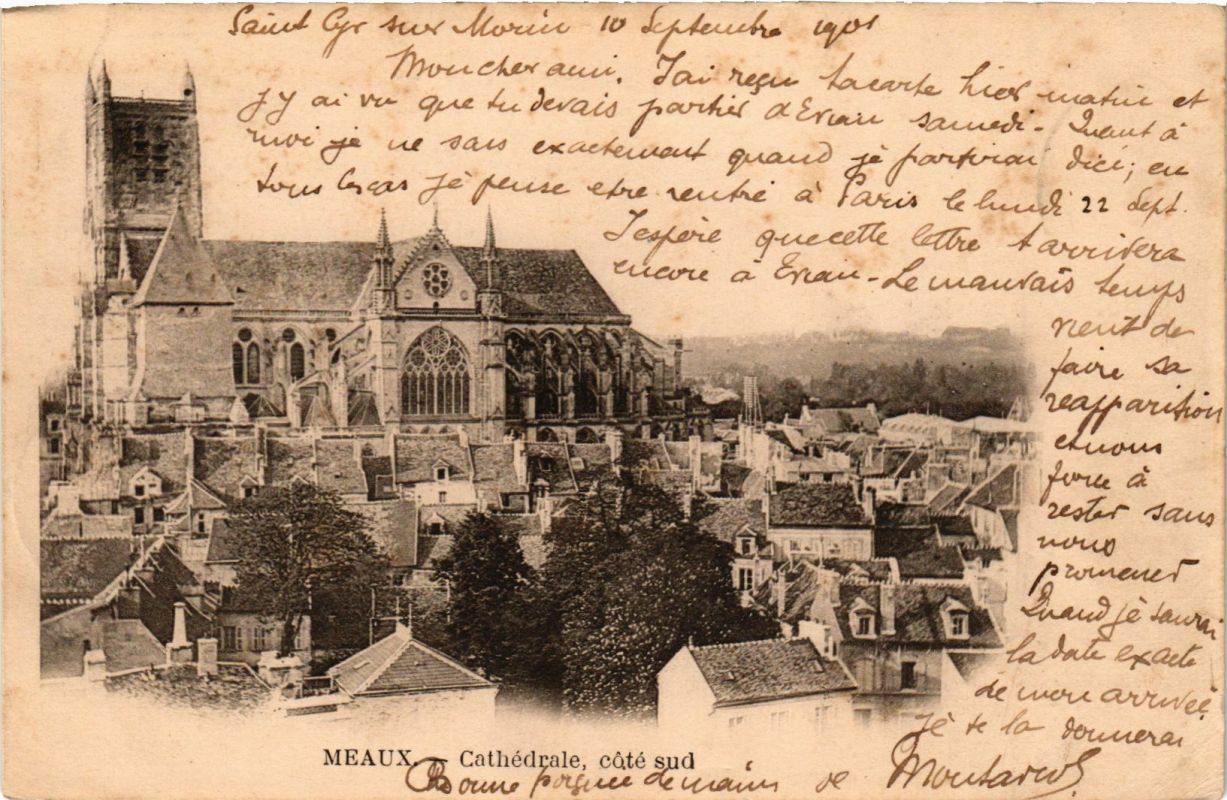 Saint Cyr sur Morin 10 Septembre 1901
Mon cher ami. J'ai reçu ta carte hier matin et
j'y ai vu que tu devais partir d'Evian samedi - Quant à
moi je ne sais exactement quand je partirai d'ici; en
tous les cas je pense etre rentré à Paris le lundi 22 Sept.
J'espère que cette lettre t'arrivera
encore à Evian - Le mauvais temps
vient de
faire sa
reapparition
et nous
force à
rester sans
nous
promener
Quand je saurai
la date exacte
de mon arrivée
je te la donnerai
MEAUX. — Cathédrale, côté sud
Bonne poignée de mains de